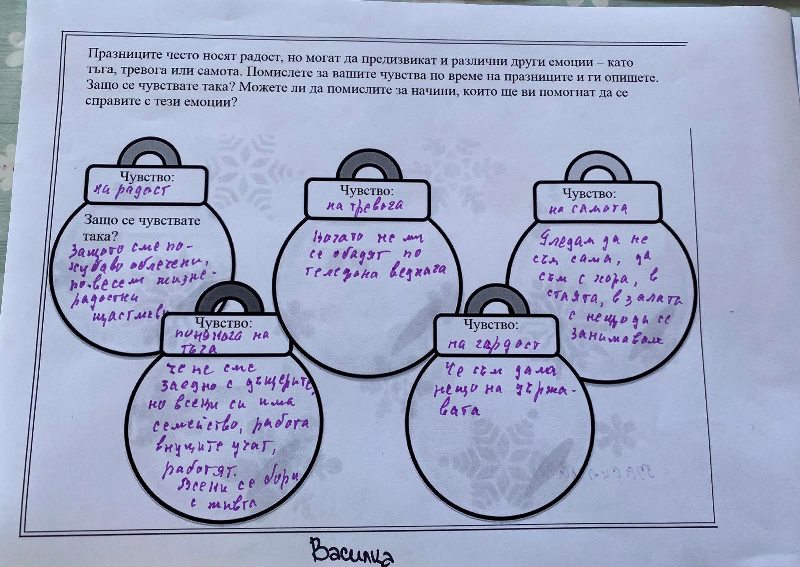 Празниците често носят радост, но могат да предизвикат и различни други емоции – като
тъга, тревога или самота. Помислете за вашите чувства по време на празниците и ги опишете.
Защо се чувствате така? Можете ли да помислите за начини, които ще ви помогнат да се
справите с тези емоции?
Чувство:
на радост
Защо се чувствате
така?
Защото сме по-
хубаво облечени,
по-весели жизне-
радостни
щастливи
Чувство:
на тревога
Когато не ми
се обадят по
телефона веднага
Чувство:
на самота
Гледам да не
съм сама, да
съм с хора, в
стаята, в залата
с нещо да се
занимавам
Чувство:
понякога на
тъга
Че не сме
заедно с дъщерите,
но всеки си има
семейство, работа
внуците учат,
работят.
Всеки се бори
с живта
Чувство:
на гордост
Че съм дала
нещо на държа-
вата
Василка